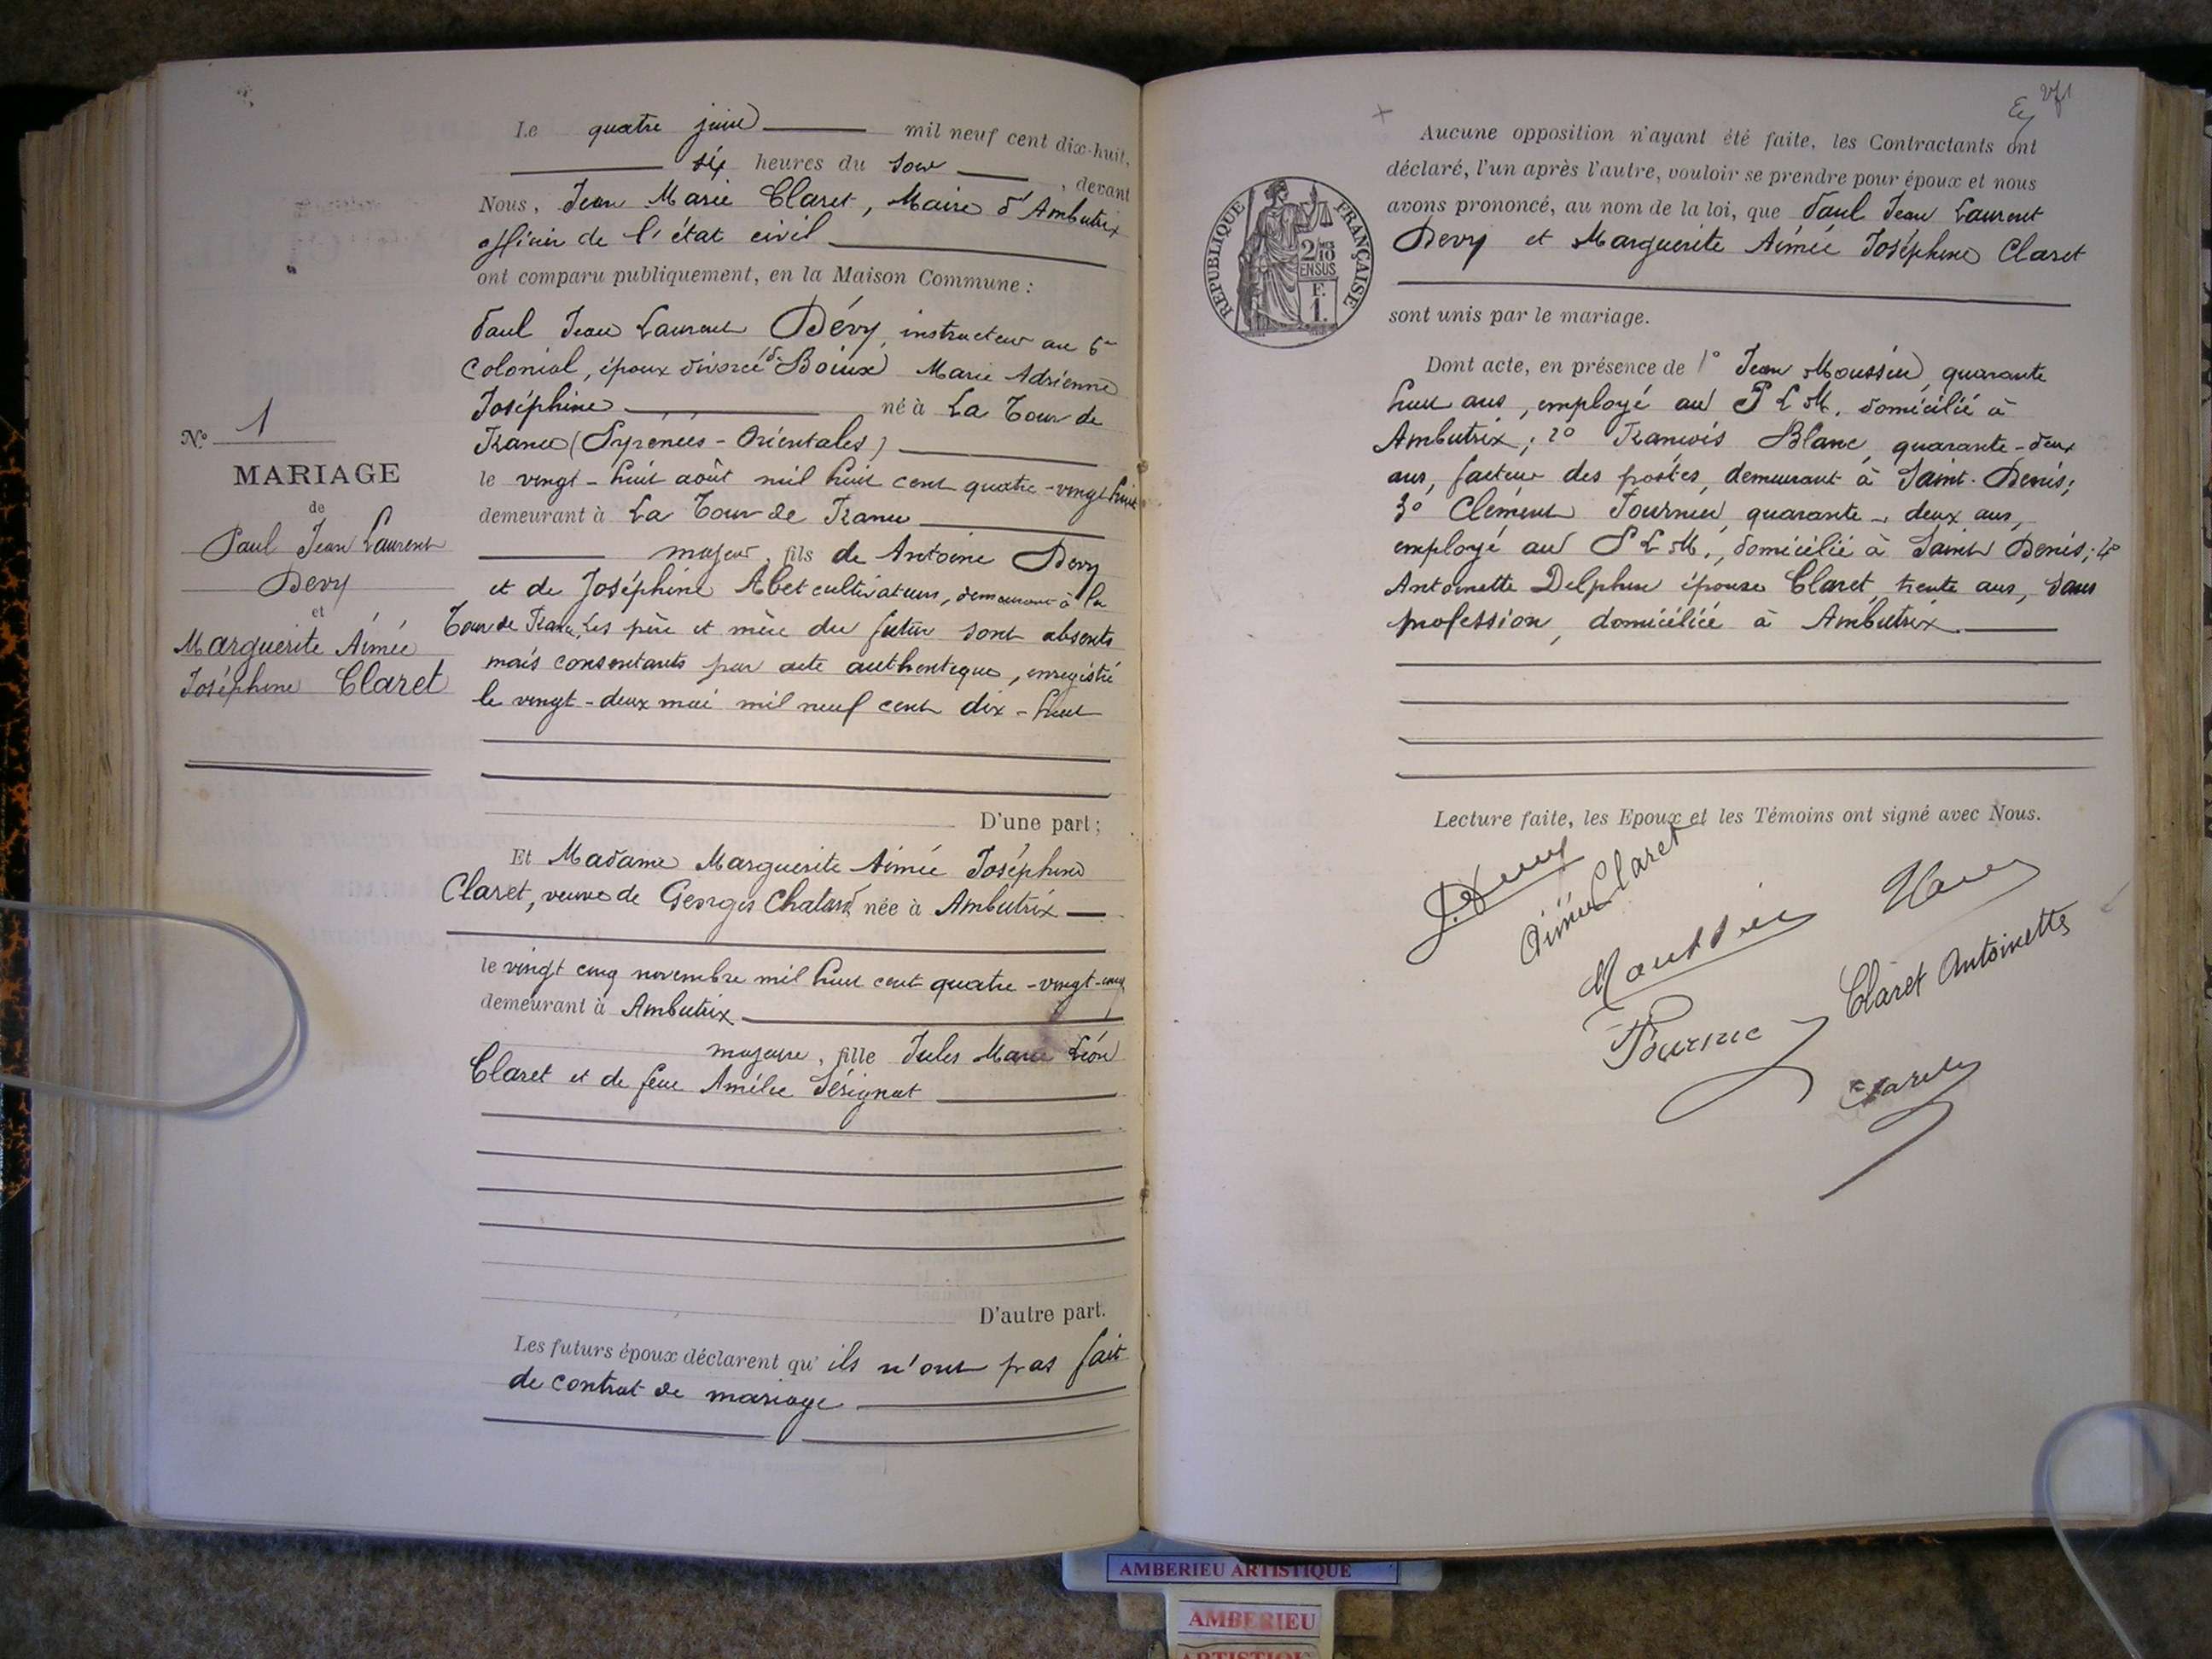 Le quatre juin mil neuf cent dix-huit,
six heures du soir, devant
Nous, Jean Marie Claret, Maire d'Ambutrix
officier de l'état civil
ont comparu publiquement, en la Maison Commune :
Paul Jean Laurent Dévy, instructeur au 6e
Colonial, époux divorcé de Boiux Marie Adrienne
Joséphine né à La Tour de
France (Pyrénées-Orientales)
le vingt-huit août mil huit cent quatre-vingt huit
demeurant à La Tour de France
majeur, fils de Antoine Devy
et de Joséphine Abet cultivateurs, demeurant à la
Tour de France, Les père et mère du futur sont absents
mais consentants par acte authentique, enregistré
le vingt-deux mai mil neuf cent dix-huit
D'une part ;
N° 1
MARIAGE
de
Paul Jean Laurent
Devy
et
Marguerite Aimée
Joséphine Claret
Et Madame Marguerite Aimée Joséphine
Claret, veuve de Georges Chatard née à Ambutrix
le vingt cinq novembre mil huit cent quatre-vingt-cinq
demeurant à Ambutrix
majeure, fille Jules Marie Léon
Claret et de feue Amélie Sérignat
D'autre part.
Les futurs époux déclarent qu'ils n'ont pas fait
de contrat de mariage
271
REPUBLIQUE FRANÇAISE
2/10 MES
EN SUS
F.
1.
Aucune opposition n'ayant été faite, les Contractants ont
déclaré, l'un après l'autre, vouloir se prendre pour époux et nous
avons prononcé, au nom de la loi, que Paul Jean Laurent
Devy et Marguerite Aimée Joséphine Claret
sont unis par le mariage.
Dont acte, en présence de 1° Jean Moussier, quarante
huit ans, employé au P L M. domicilié à
Ambutrix ; 2° François Blanc, quarante-deux
ans, facteur des postes, demeurant à Saint-Denis ;
3° Clément Fournier, quarante-deux ans,
employé au P L M., domicilié à Saint Denis ; 4°
Antoinette Delphine épouse Claret, trente ans, sans
profession, domiciliée à Ambutrix.
Lecture faite, les Epoux et les Témoins ont signé avec Nous.
Aimée Claret
Moussier
Claret Antoinette
Claret
AMBERIEU ARTISTIQUE
AMBERIEU
ARTISTIQUE